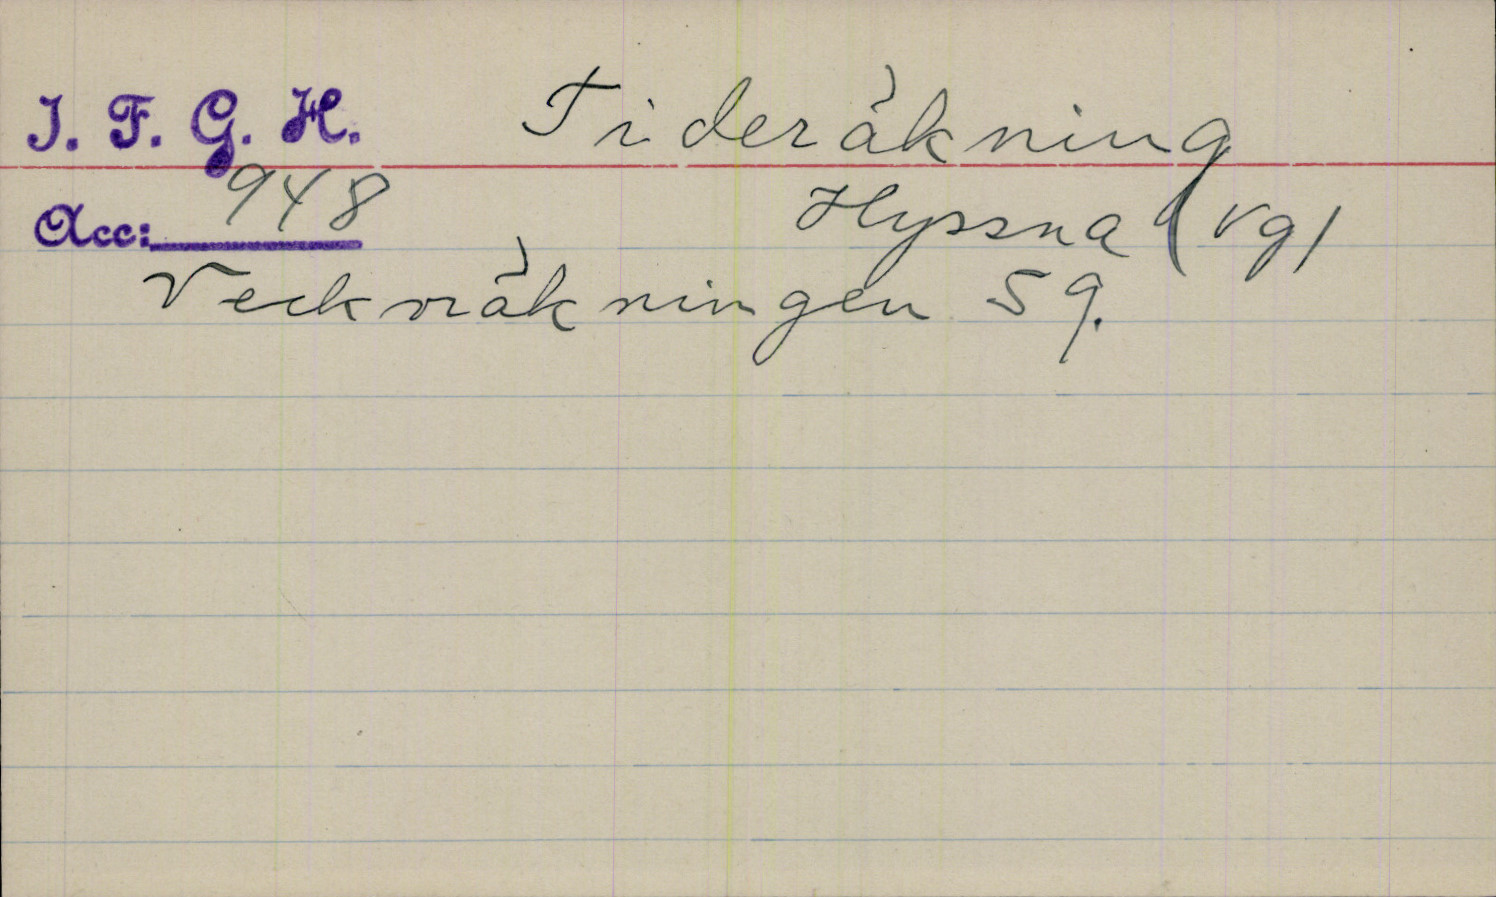 I. F. G. H. Tideräkning
Acc: 948 Hyssna (Vg)
Veckoräkningen 59.